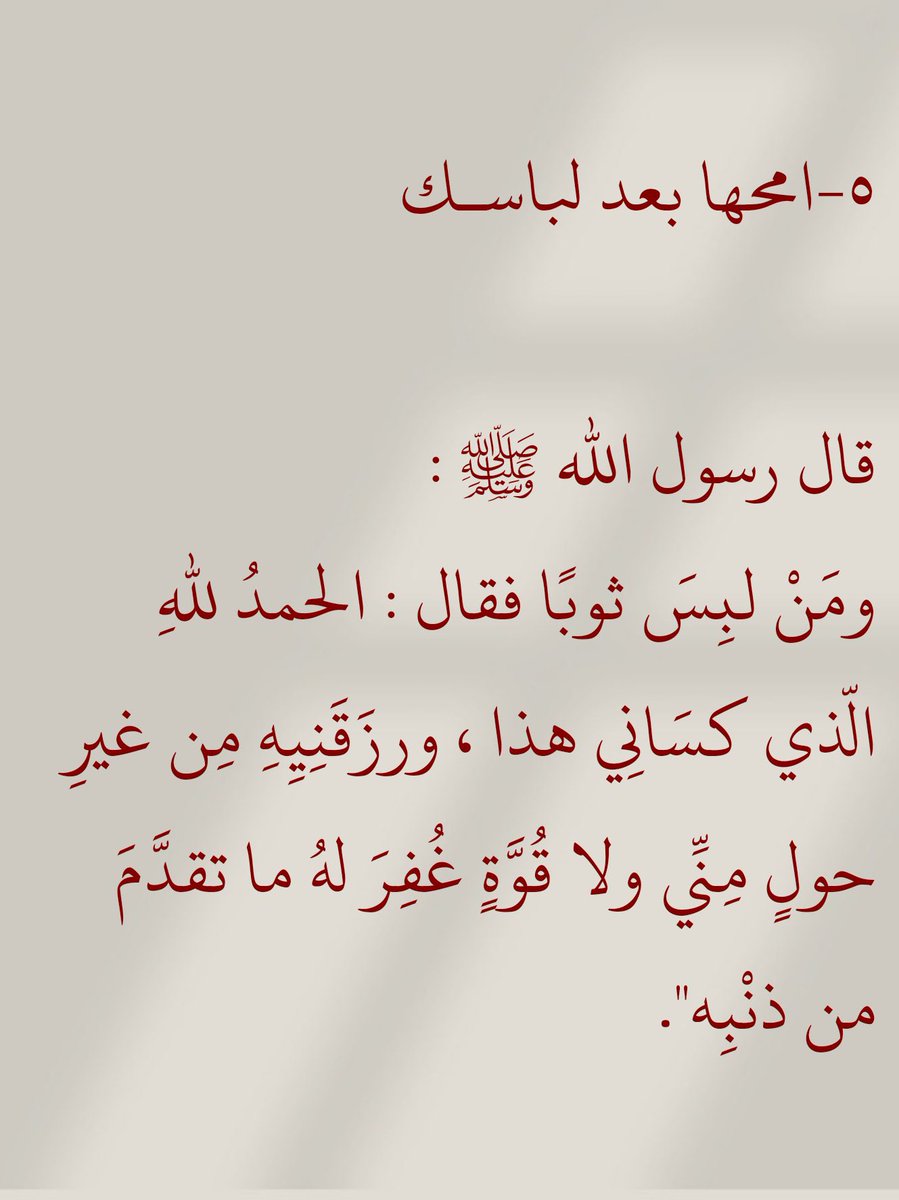 ٥-امحها بعد لباسـك
قال رسول الله ﷺ :
ومَنْ لبِسَ ثوبًا فقال : الحمدُ للهِ
الّذي كسَانِي هذا ، ورزَقَنِيِهِ مِن غيرِ
حولٍ مِنِّي ولا قُوَّةٍ غُفِرَ لهُ ما تقدَّمَ
من ذنْبِه".